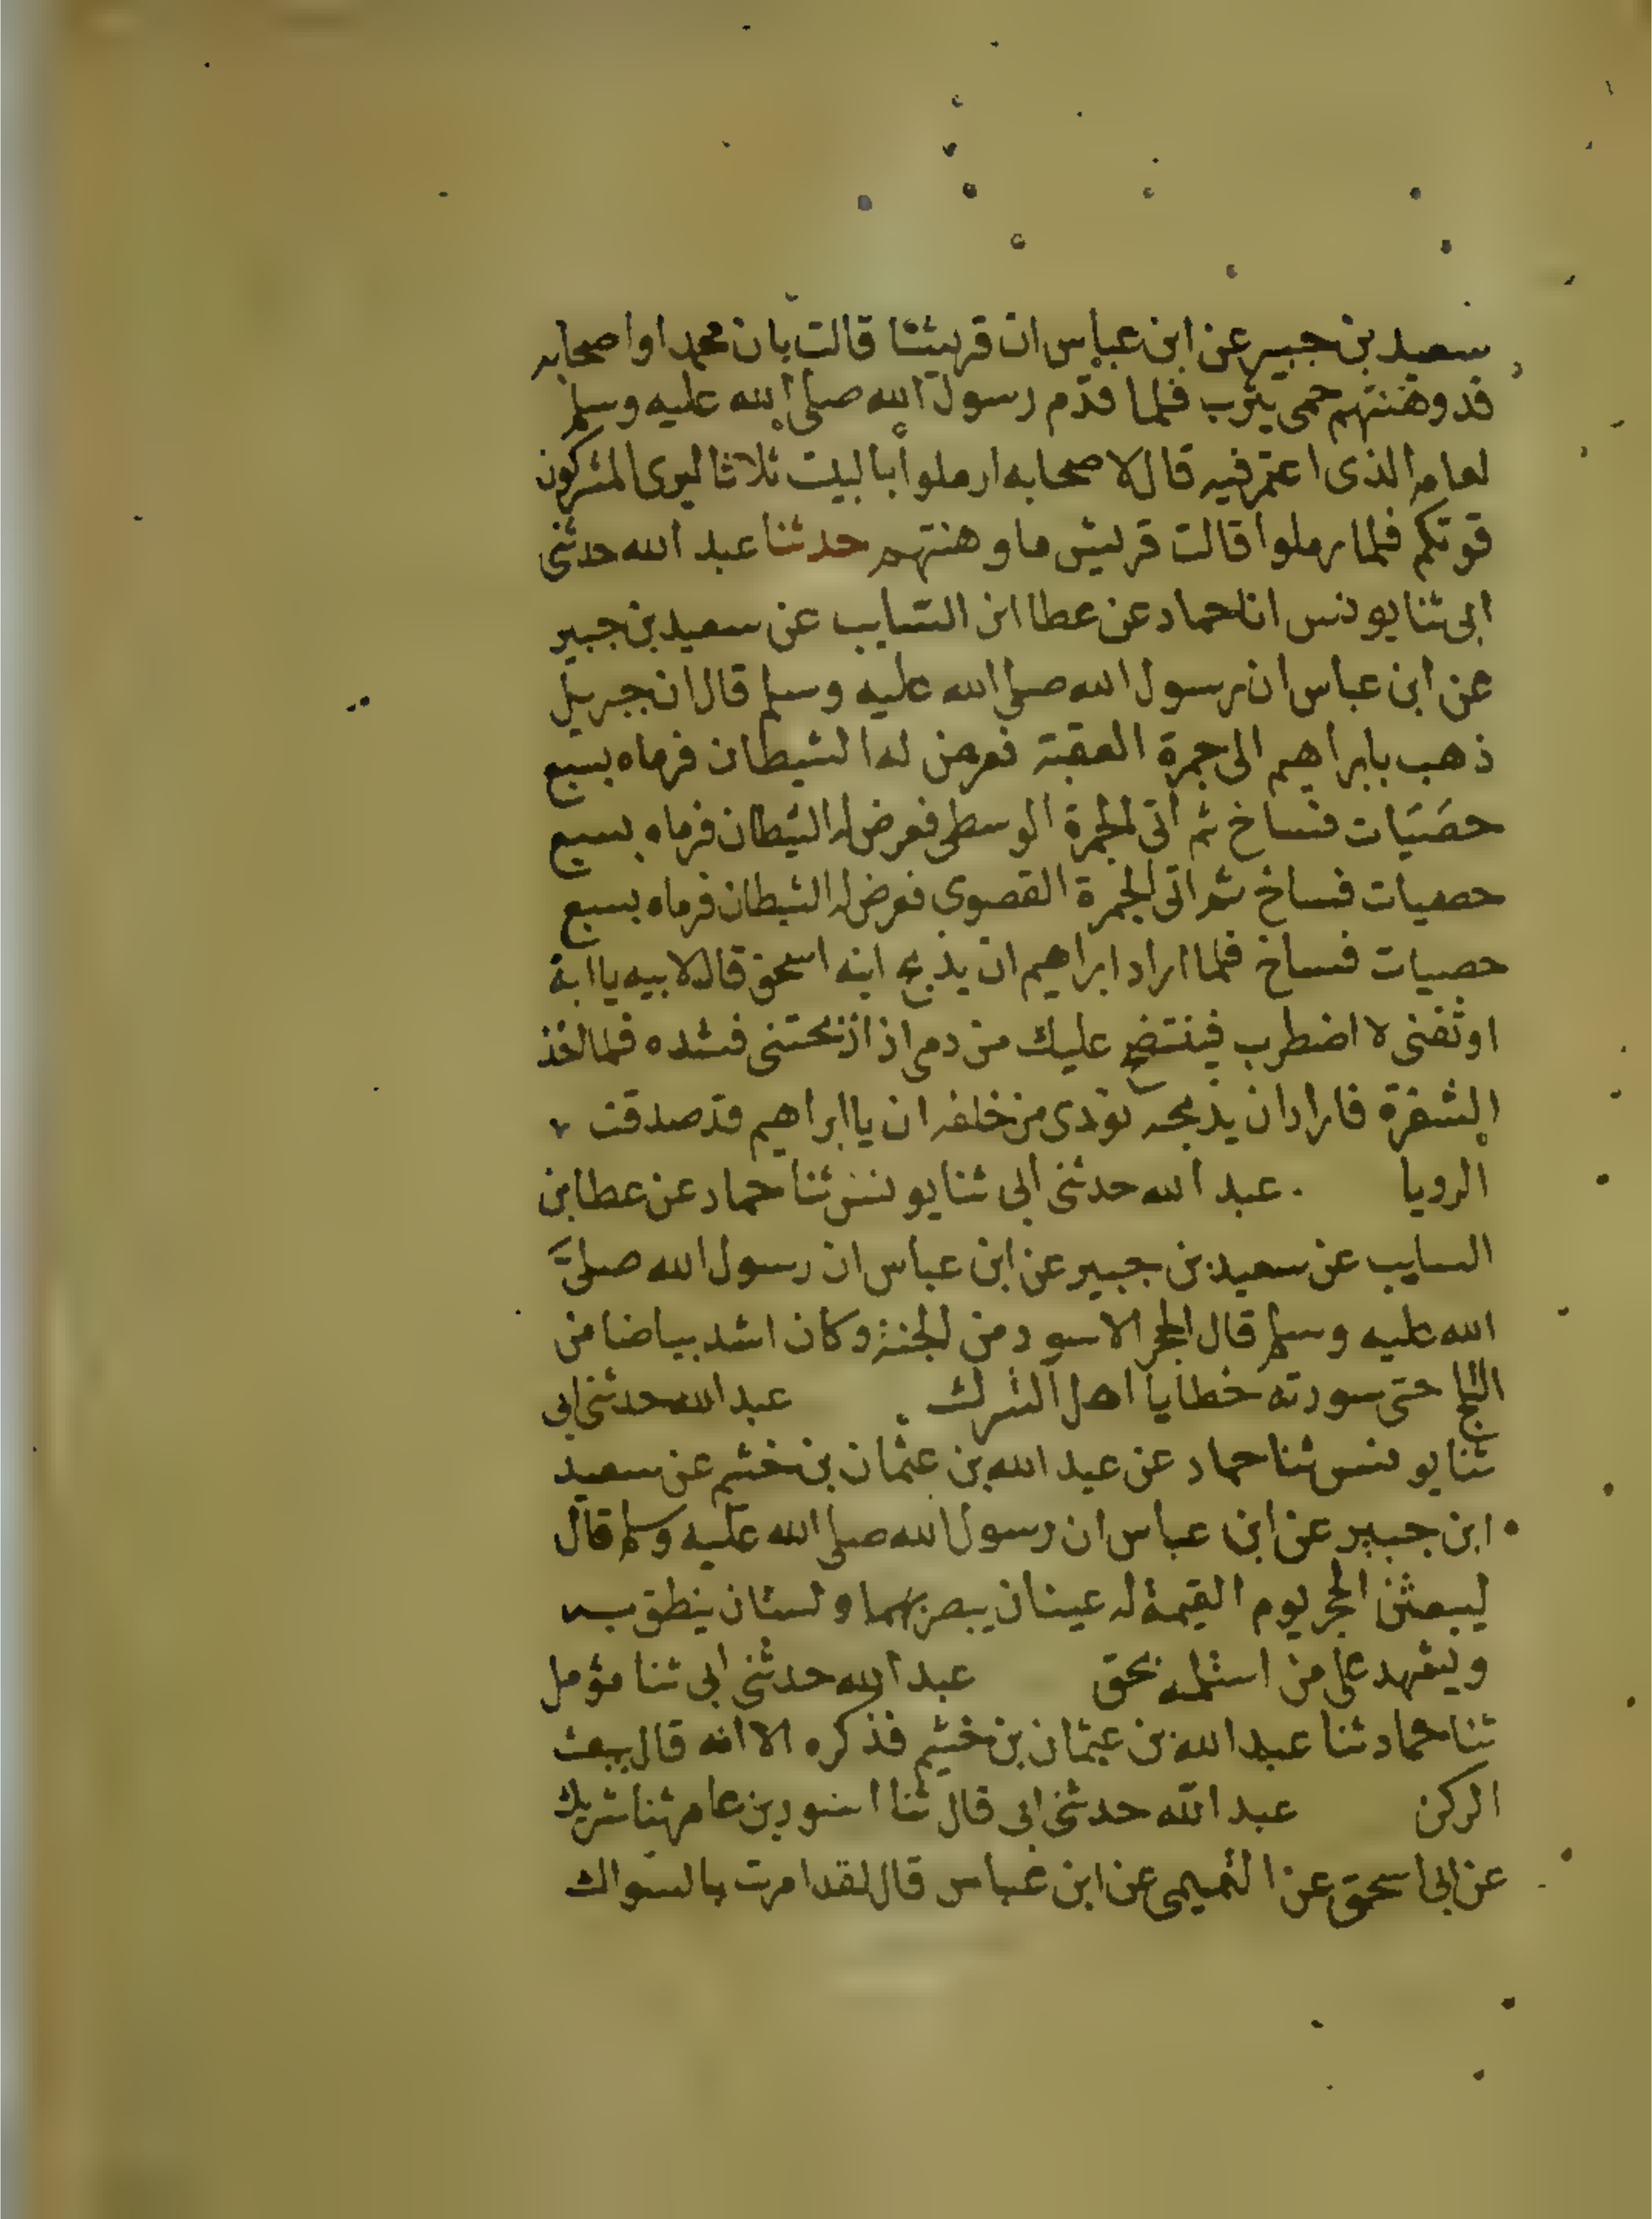 سعيد بن جبير عن ابن عباس ان قريشا قالت بان محمدا واصحابه
قد وهنتهم حمى يثرب فلما قدم رسول الله صلى الله عليه وسلم
لعامه الذى اعتمر فيه قال لاصحابه ارملوا بالبيت ثلاثا ليرى المشركون
قوتكم فلما رملوا قالت قريش ما وهنتهم حدثنا عبد الله حدثنى
ابى ثنا يونس انا حماد عن عطا ابن السايب عن سعيد بن جبير
عن ابن عباس ان رسول الله صلى الله عليه وسلم قال ان جبريل
ذهب بابراهيم الى جمرة العقبة فعرض له الشيطان فرماه بسبع
حصَيَات فساخ ثم اتى الجمرة الوسطى فعرض له الشيطان فرماه بسبع
حصيات فساخ ثم اتى الجمرة القصوى فعرض له الشيطان فرماه بسبع
حصيات فساخ فلما اراد ابراهيم ان يذبح ابنه اسحق قال لابيه يا ابة
اوثقنى لا اضطرب فينتضح عليك من دمى اذا ذبحتنى فشده فلما اخذ
الشفرة فاراد ان يذبحه نودى من خلفه ان يا ابراهيم قد صدقت
الرويا عبد الله حدثنى ابى ثنا يونس ثنا حماد عن عطا بن
السايب عن سعيد بن جبير عن ابن عباس ان رسول الله صلى
الله عليه وسلم قال الحجر الاسود من الجنة وكان اشد بياضا من
الثلج حتى سودته خطايا اهل الشرك عبد الله حدثنى ابى
ثنا يونس ثنا حماد عن عبد الله بن عثمان بن خثيم عن سعيد
ابن جبير عن ابن عباس ان رسول الله صلى الله عليه وسلم قال
ليبعثن الحجر يوم القيمة له عينان يبصر بهما ولسان ينطق به
ويشهد على من استلمه بحق عبد الله حدثنى ابى ثنا مؤمل
ثنا حماد ثنا عبد الله بن عثمان بن خثيم فذكره الا انه قال يبعث
الركن عبد الله حدثنى ابى قال ثنا اسود بن عامر ثنا شريك
عن ابى اسحق عن التميمى عن ابن عباس قال لقد امرت بالسواك